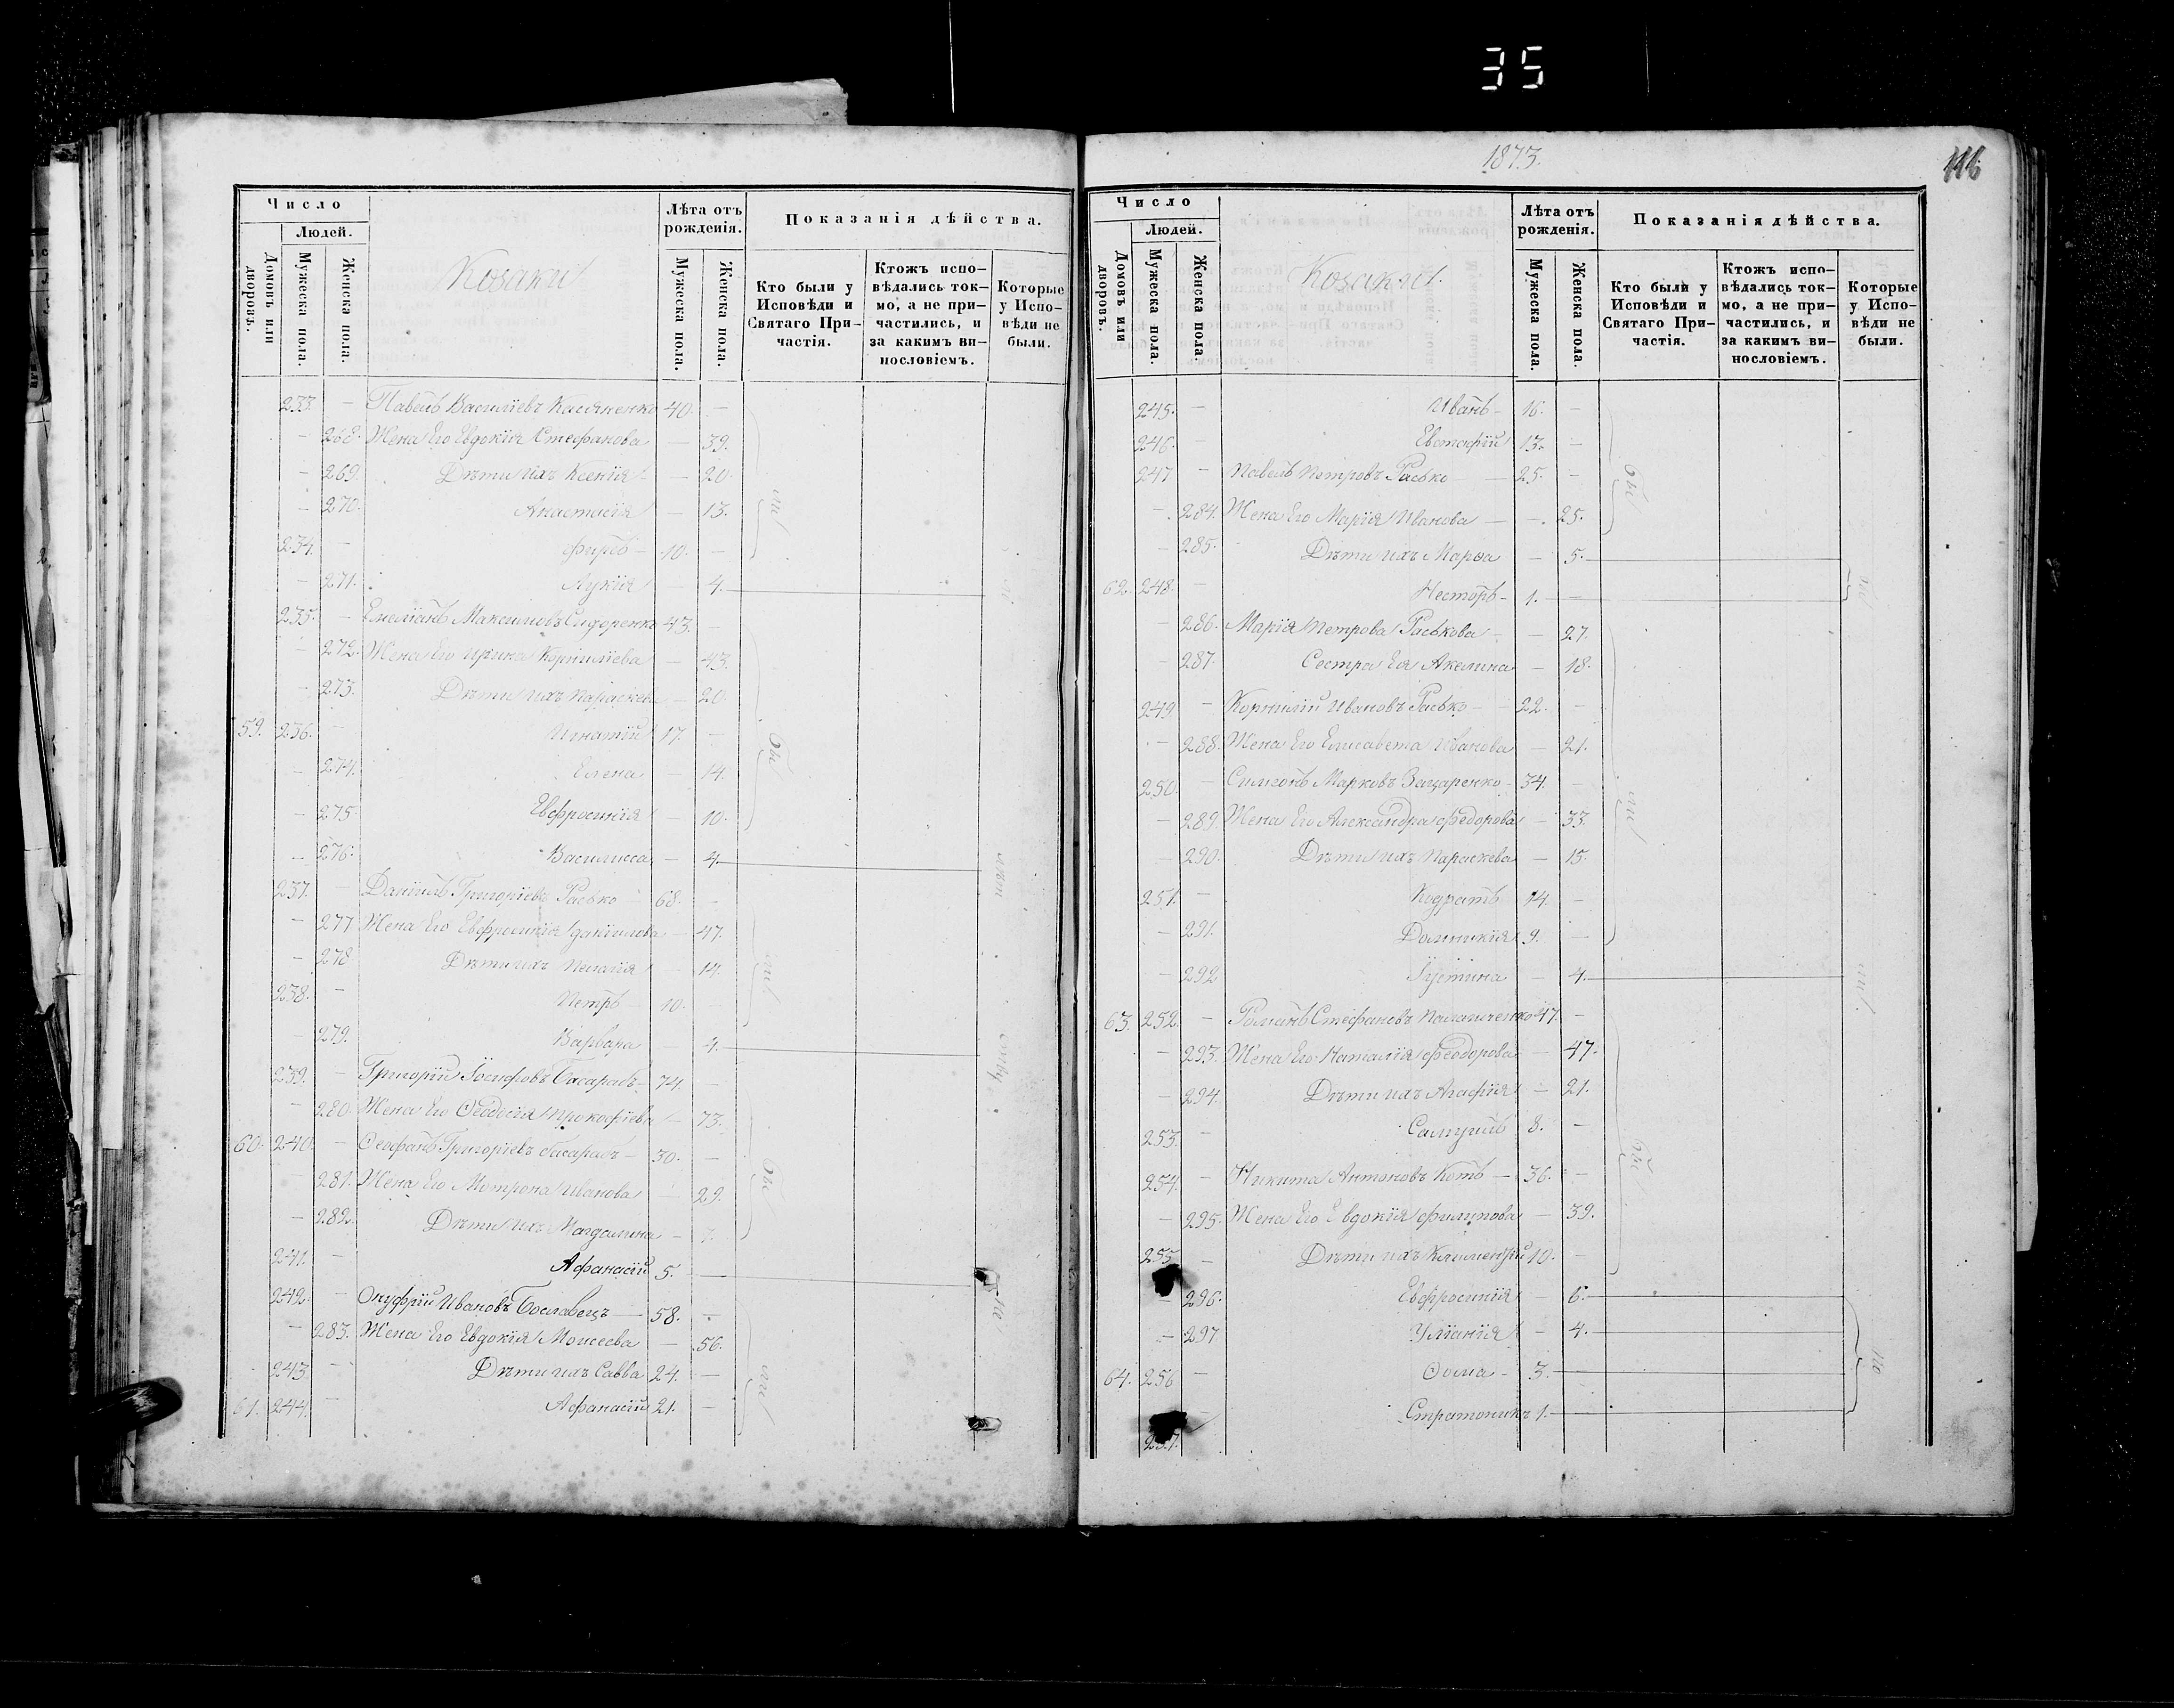 35
Число
Людей.
Домовъ или дворовъ.
Мужеска пола.
Женска пола.
Козаки
Лѣта отъ рожденія.
Мужеска пола.
Женска пола.
Показанія дѣйства.
Кто были у Исповѣди и Святаго При-частія.
Ктожъ испо-вѣдались ток-мо, а не при-частились, и за какимъ ви-нословіемъ.
Которые у Испо-вѣди не были.
233. — Павелъ Васильевъ 40. —
— 268. Жена Его Евдокія Стефанова — 39.
— 269. Дѣти ихъ Ксенія — 20.
— 270. Анастасія — 13.
234. — 10. —
— 271. Лукія — 4.
235. — Емеліанъ Максимовъ Сидоренко 43. —
— 272. Жена Его Ирина Корниліева — 43.
— 273. Дѣти ихъ Параскева — 20.
59. 236. — Игнатій 17. —
— 274. Елена — 14.
— 275. Евфросинія — 10.
— 276. Василисса — 4.
237. — Даніилъ Григоріевъ Расько 68. —
— 277 Жена Его Евфросинія Даніилова — 47.
— 278 Дѣти ихъ Пелагія — 14.
238. — Петръ 10. —
— 279. Варвара — 4.
239. — Григорій Іосифовъ Басарабъ 74. —
— 280. Жена Его Ѳеодосія Прокофіева — 73.
60. 240. — Ѳеофанъ Григоріевъ Басарабъ — 30. —
— 281. Жена Его Мотрона Иванова — 29.
— 282. Дѣти ихъ Магдалина — 7.
241. — Афанасій 5. —
242. — Онуфрій Ивановъ Бославецъ — 58. —
— 283. Жена Его Евдокія Моисеева — 56.
243 — Дѣти ихъ Савва 24. —
61. 244. — Афанасій 21. —
1873.
116
Число
Людей.
Домовъ или дворовъ.
Мужеска пола.
Женска пола.
Козаки
Лѣта отъ рожденія.
Мужеска пола.
Женска пола.
Показанія дѣйства.
Кто были у Исповѣди и Святаго При-частія.
Ктожъ испо-вѣдались ток-мо, а не при-частились, и за какимъ ви-нословіемъ.
Которые у Испо-вѣди не были.
245. — Иванъ — 16. —
246. — Евстафій 13. —
247 — Павелъ Петровъ Расько — 25. —
— 284. Жена Его Марія Иванова — 25.
— 285. Дѣти ихъ Марѳа — 5.
62. 248. — Несторъ — 1. —
— 286. Марія Петрова Раськова — 27.
— 287. Сестра Ея Акелина — 18.
249. — Корнилій Ивановъ Расько — 22. —
— 288. Жена Его Елисавета Иванова — 21.
250. — Симеонъ Марковъ Зацаренко — 34. —
— 289. Жена Его Александра Федорова — 33.
— 290. Дѣти ихъ Параскева — 15.
251. — Кодратъ 14. —
— 291. Домникія 9. —
— 292 Іустина — 4.
63. 252. — Романъ Стефановъ 47. —
— 293. Жена Его Наталія Феодорова — 47.
— 294. Дѣти ихъ Агафія — 21.
253. — Самуилъ 8. —
254. — Никита Антоновъ Котъ — 36. —
— 295. Жена Его Евдокія Филипова — 39.
255 — Дѣти ихъ Климентій 10. —
— 296. Евфросинія — 6.
— 297 Уліанія — 4.
64. 256 — Ѳома — 3.
257. — Стратоникъ 1.